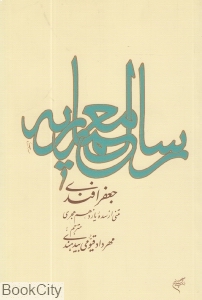 رساله معماریه
جعفر افندی
متنی از سده یازدهم هجری
مترجم
مهرداد قیومی بیدهندی
BookCity